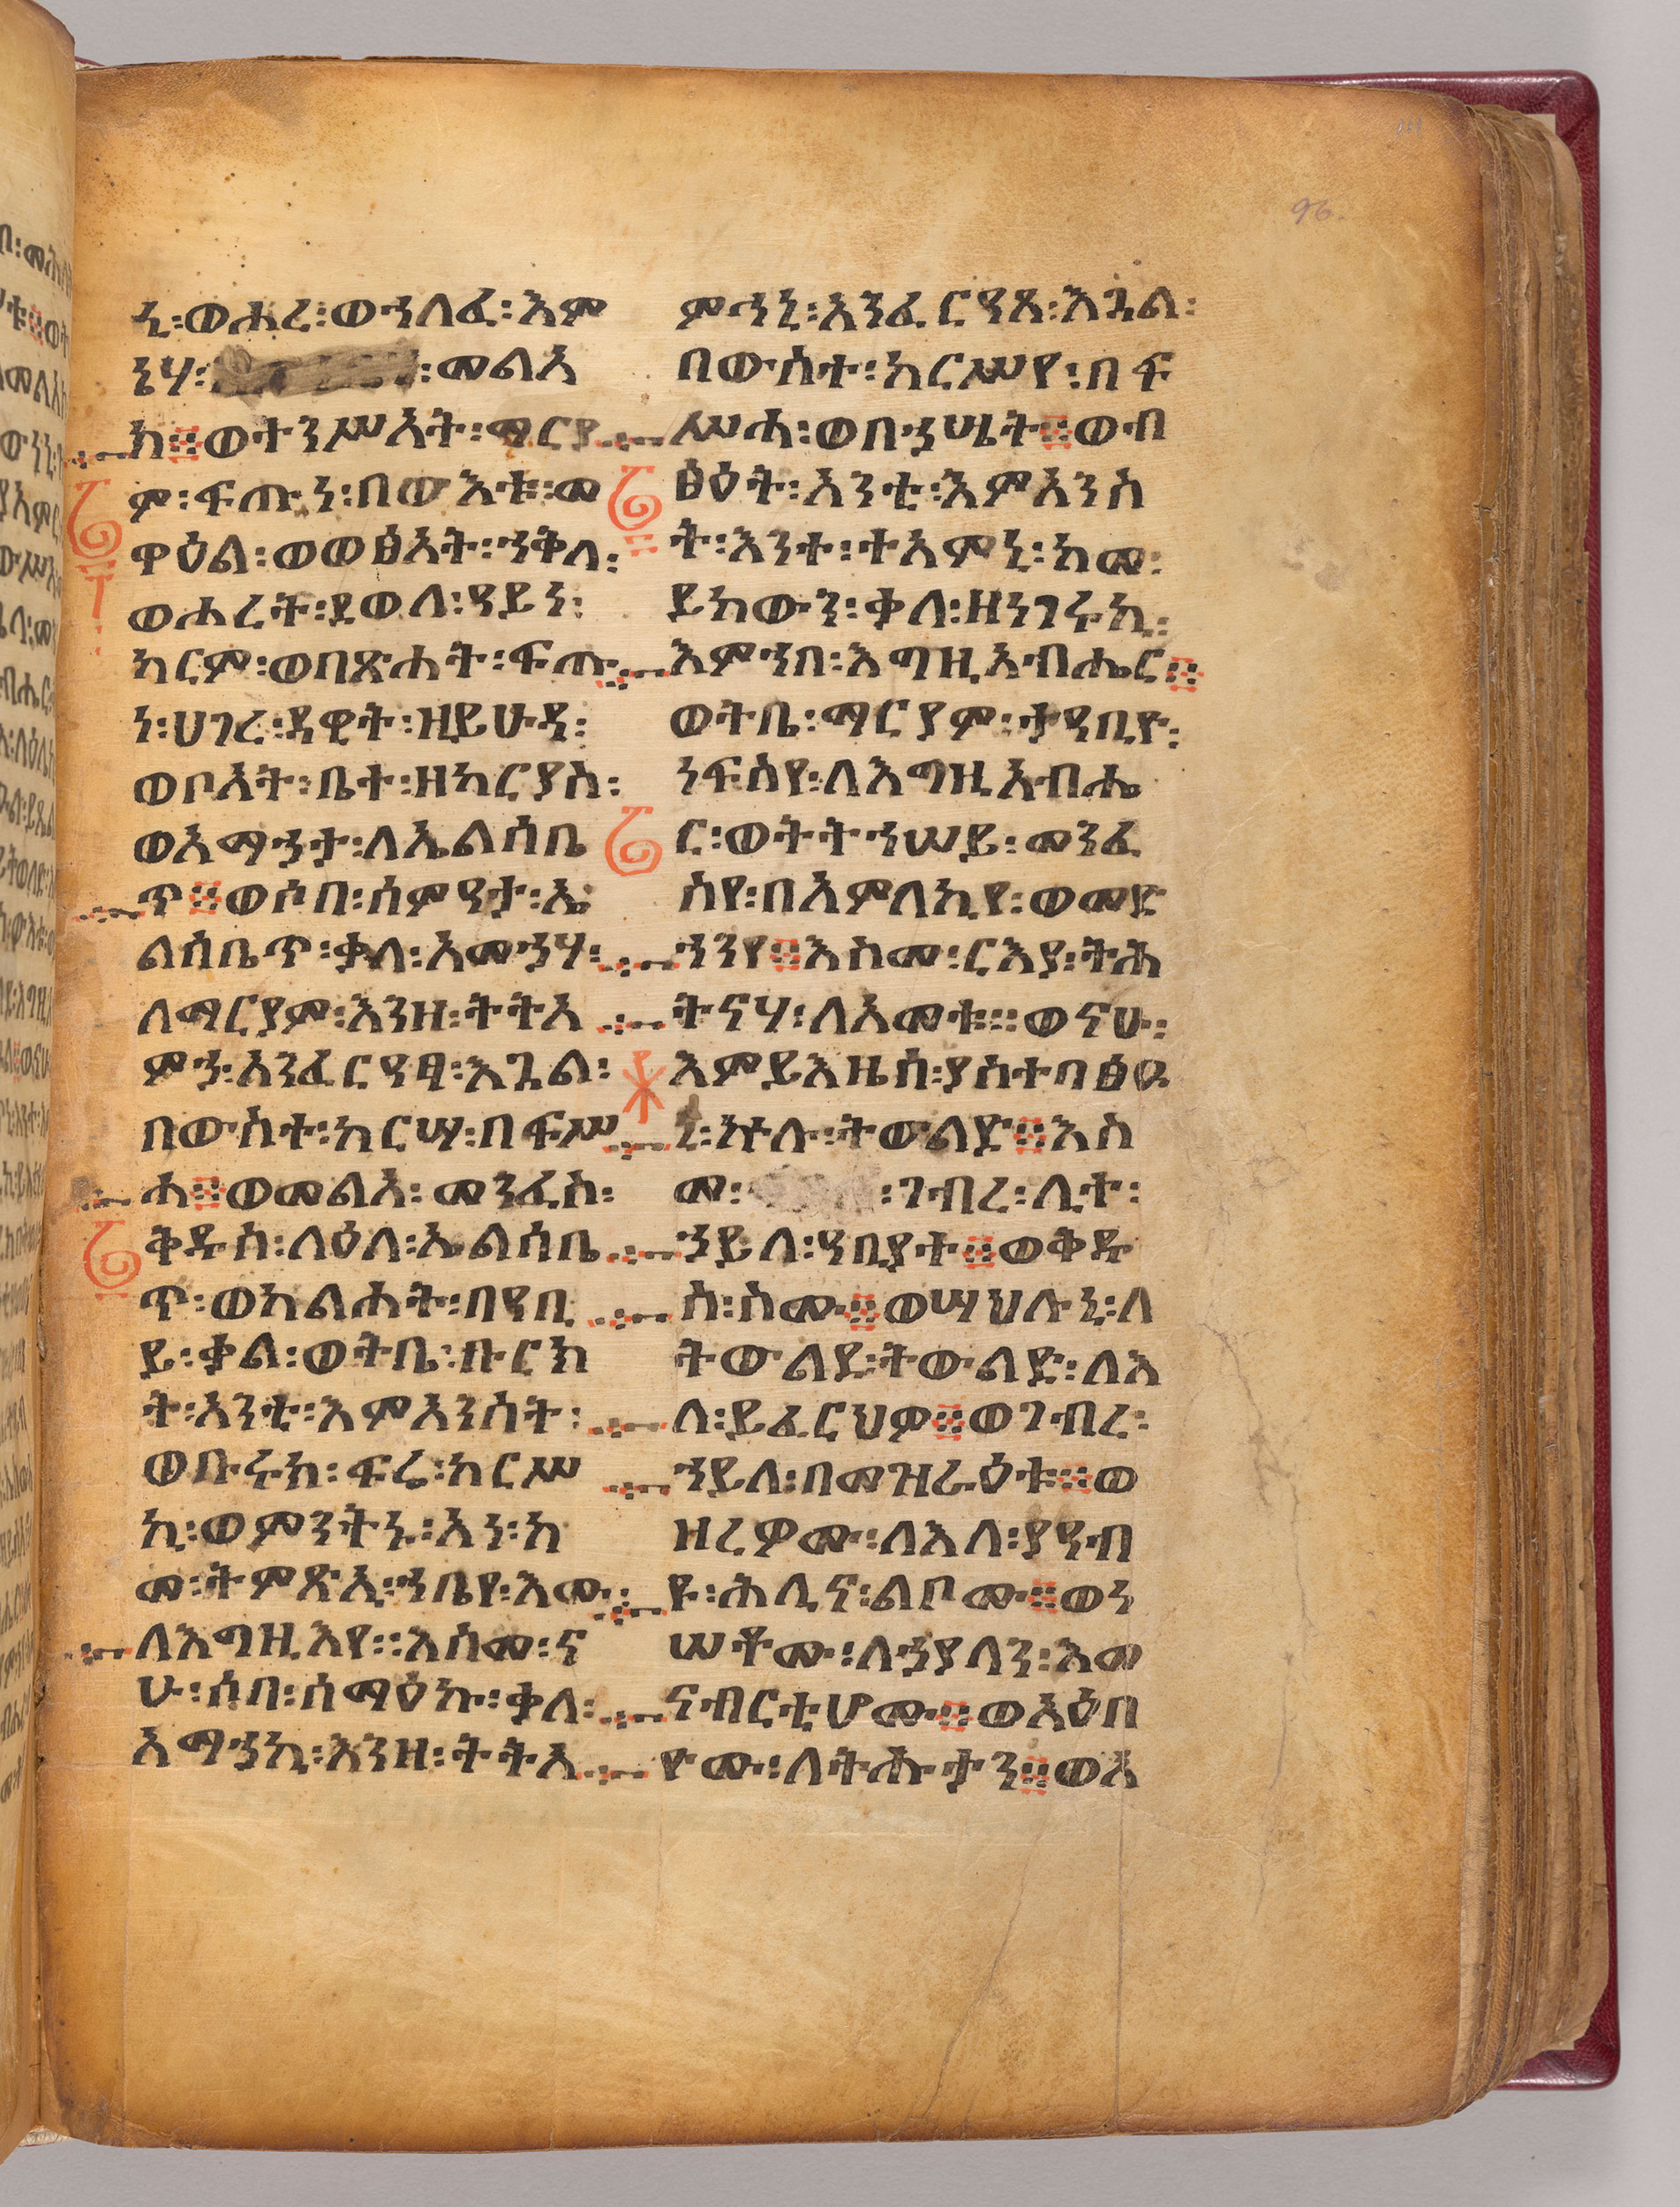 ኒ፡ወሐረ፡ወኀለፈ፡እም
ኔሃ፡ ፡መልአ
ክ፨ወተንሥአት፡ማርያ
ም፡ፍጡነ፡በውእቱ፡መ
ዋዕል፡ወወፅአት፡ኀቅለ፡
ወሐረት፡ደወለ፡ዓይነ፡
ካርም፡ወበጽሐት፡ፍጡ
ነ፡ሀገረ፡ዳዊት፡ዘይሁዳ፡
ወቦአት፡ቤተ፡ዘካርያስ፡
ወአማኅታ፡ለኤልሳቤ
ጥ፨ወሶበ፡ሰምዓታ፡ኤ
ልሳቤጥ፡ቃለ፡አመኅሃ፡
ለማርያም፡እንዘ፡ትትአ
ምኅ፡አንፈርዓፂ፡እጓል፡
በውስተ፡ከርሣ፡በፍሥ
ሐ፨ወመልአ፡መንፈስ፡
ቅዱስ፡ላዕለ፡ኤልሳቤ
ጥ፡ወከልሐት፡በዓቢ
ይ፡ቃል፡ወትቤ፡ቡርክ
ት፡አንቲ፡እምአንስት፡
ወቡሩክ፡ፍሬ፡ከርሥ
ኪ፡ወምንትኑ፡አነ፡ከ
መ፡ትምጽኢ፡ኀቤየ፡እሙ፡
ለእግዚእየ፡፡እስመ፡ና
ሁ፡ሶበ፡ሰማዕኩ፡ቃለ፡
አማኅኪ፡እንዘ፡ትትአ
ምኅኒ፡አንፈርዓጸ፡እጓል፡
በውስተ፡ከርሥየ፡በፍ
ሥሐ፡ወበኃሤት፨ወብ
ፅዕት፡አንቲ፡እምአንስ
ት፡እንተ፡ተአምኒ፡ከመ፡
ይከውን፡ቃለ፡ዘነገሩኪ፡
እምኀበ፡እግዚአብሔር፨
ወትቤ፡ማርያም፡ታዓቢዮ፡
ነፍስየ፡ለእግዚአብሔ
ር፡ወትትኀሠይ፡መንፈ
ስየ፡በአምላኪየ፡ወመድ
ኀንየ፨እስመ፡ርእያ፡ትሕ
ትናሃ፡ለአመቱ፡፡ወናሁ፡
እምይእዜሰ፡ያስተበፅዑ
ኒ፡ኵሉ፡ትውልድ፨እስ
መ፡ ፡ገብረ፡ሊተ፡
ኀይለ፡ዓቢያተ፨ወቅዱ
ስ፡ስሙ፨ወሣህሉኒ፡ለ
ትውልደ፡ትውልድ፡ለእ
ለ፡ይፈርህዎ፨ወገብረ፡
ኀይለ፡በመዝራዕቱ፨ወ
ዘረዎሙ፡ለእለ፡ያዓብ
ዩ፡ሕሊና፡ልቦሙ፨ወነ
ሠቶሙ፡ለኃያላን፡እመ
ናብርቲሆሙ፨ወአዕበ
ዮሙ፡ለትሑታን፨ወአ
96.